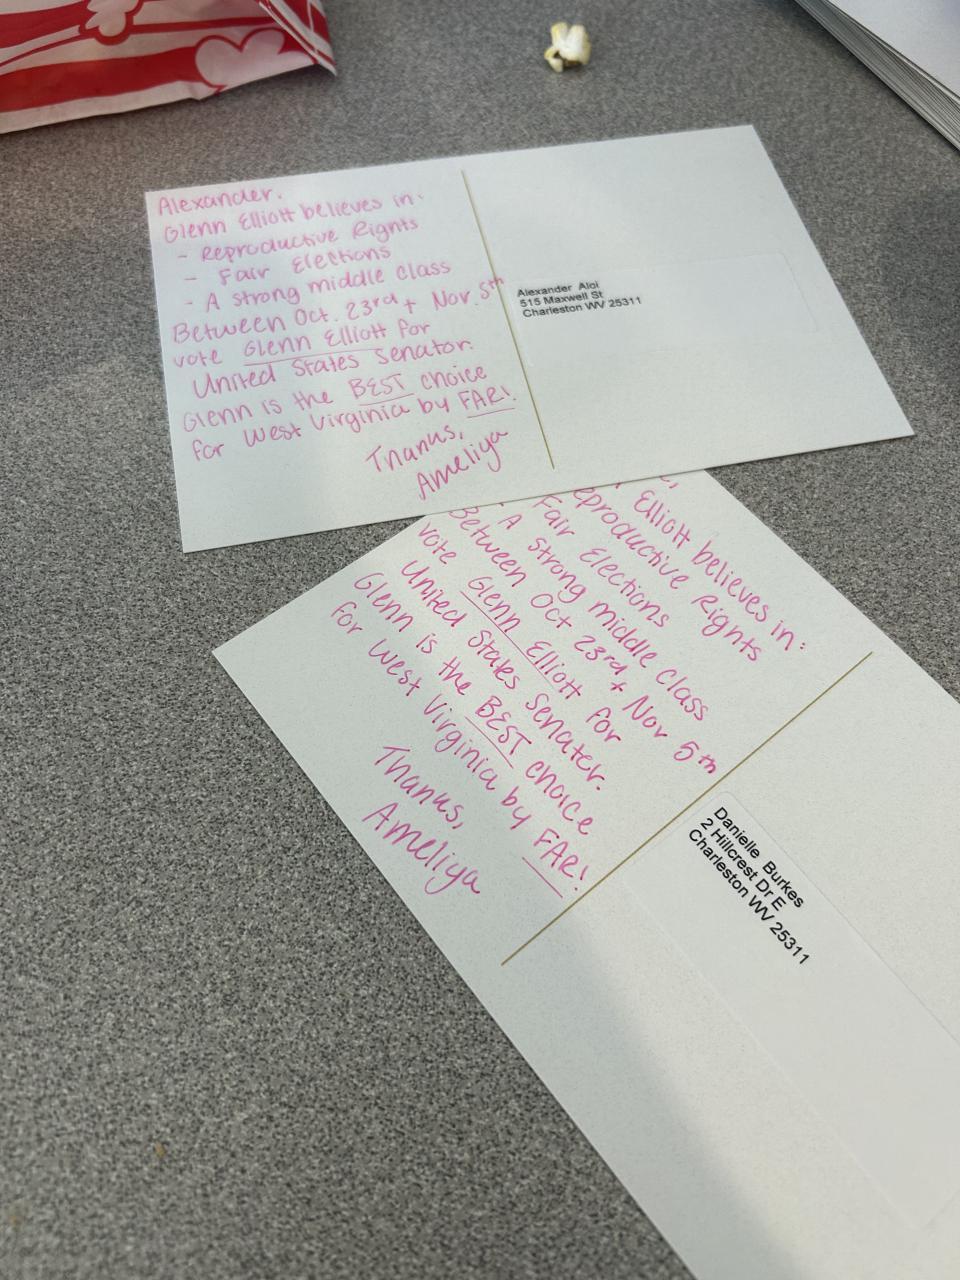 Alexander.
Glenn Elliott believes in:
- Reproductive Rignts
- Fair Elections
- A strong middle class
Between Oct. 23rd + Nov 5th
vote Glenn Elliott for
United States Senator.
Glenn is the BEST choice
for West Virginia by FAR!
Thanks,
Ameliya
Alexander Aloi
515 Maxwell St
Charleston WV 25311
Elliott believes in:
eproductive Rights
Fair Elections
A strong middle class
Between Oct 23rd + Nov 5th
vote Glenn Elliott for
United States Senater.
Glenn is the BEST choice
for West Virginia by FAR!
Thanks,
Ameliya
Danielle Burkes
2 Hillcrest Dr E
Charleston WV 25311